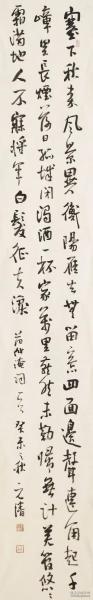 塞下秋来風景異衡陽雁去無留意四面邊聲連角起千
嶂里長煙落日孤城閉濁酒一杯家萬里燕然未勒歸無計羌管悠悠
霜滿地人不寐將軍白髮征夫淚 范仲淹詞 癸未之秋